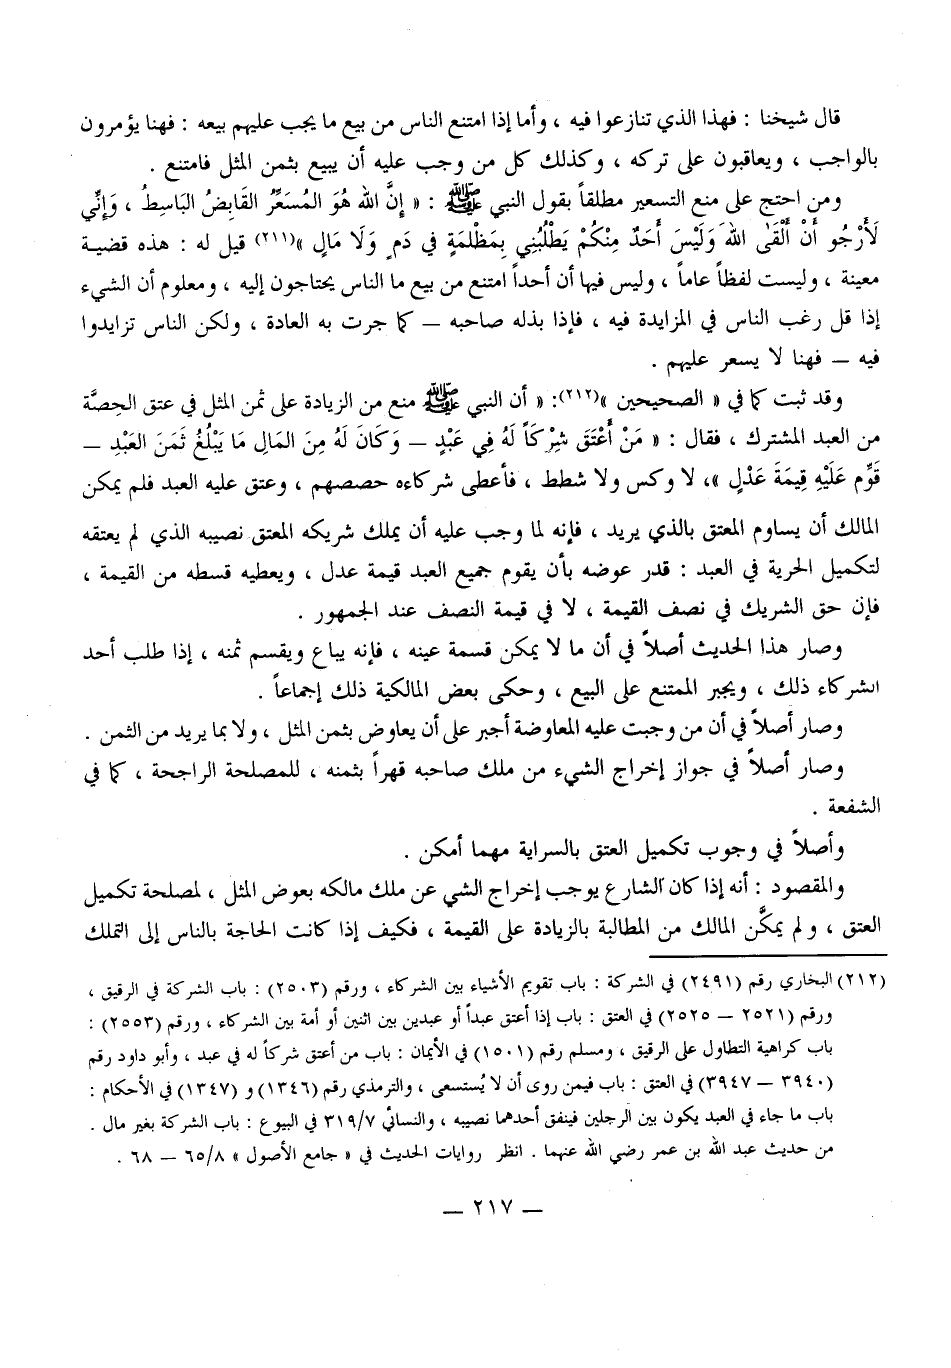 قال شيخنا : فهذا الذي تنازعوا فيه ، وأما إذا امتنع الناس من بيع ما يجب عليهم بيعه : فهنا يؤمرون
بالواجب ، ويعاقبون على تركه ، وكذلك كل من وجب عليه أن يبيع بثمن المثل فامتنع .
ومن احتج على منع التسعير مطلقاً بقول النبي ﷺ : « إِنَّ الله هُوَ المُسَعِّرُ القَابِضُ البَاسِطُ ، وَإِنِّي
لَأَرْجُو أَنْ أَلْقَى اللهَ وَلَيْسَ أَحَدٌ مِنْكُمْ يَطْلُبُنِي بِمَظْلمَةٍ في دَمٍ وَلَا مَالٍ »(٢١١) قيل له : هذه قضية
معينة ، وليست لفظاً عاماً ، وليس فيها أن أحداً امتنع من بيع ما الناس يحتاجون إليه ، ومعلوم أن الشيء
إذا قل رغب الناس في المزايدة فيه ، فإذا بذله صاحبه — كما جرت به العادة ، ولكن الناس تزايدوا
فيه — فهنا لا يسعر عليهم .
وقد ثبت كما في « الصحيحين »(٢١٢): « أن النبي ﷺ منع من الزيادة على ثمن المثل في عتق الحِصَّة
من العبد المشترك ، فقال : « مَنْ أَعْتَقَ شِرْكَاً لَهُ فِي عَبْدٍ — وَكَانَ لَهُ مِنَ المَالِ مَا يَبْلُغُ ثَمَنَ العَبْدِ —
قَوِّم عَلَيْهِ قِيمَةَ عَدْلٍ »، لا وكس ولا شطط ، فأعطى شركاءه حصصهم ، وعتق عليه العبد فلم يمكن
المالك أن يساوم المعتق بالذي يريد ، فإنه لما وجب عليه أن يملك شريكه المعتق نصيبه الذي لم يعتقه
لتكميل الحرية في العبد : قدر عوضه بأن يقوم جميع العبد قيمة عدل ، ويعطيه قسطه من القيمة ،
فإن حق الشريك في نصف القيمة ، لا في قيمة النصف عند الجمهور .
وصار هذا الحديث أصلاً في أن ما لا يمكن قسمة عينه ، فإنه يباع ويقسم ثمنه ، إذا طلب أحد
الشركاء ذلك ، ويجبر الممتنع على البيع ، وحكى بعض المالكية ذلك إجماعاً .
وصار أصلاً في أن من وجبت عليه المعاوضة أجبر على أن يعاوض بثمن المثل ، ولا بما يريد من الثمن .
وصار أصلاً في جواز إخراج الشيء من ملك صاحبه قهراً بثمنه ، للمصلحة الراجحة ، كما في
الشفعة .
وأصلاً في وجوب تكميل العتق بالسراية مهما أمكن .
والمقصود : أنه إذا كان الشارع يوجب إخراج الشي عن ملك مالكه بعوض المثل ، لمصلحة تكميل
العتق ، ولم يمكَّن المالك من المطالبة بالزيادة على القيمة ، فكيف إذا كانت الحاجة بالناس إلى التملك
(٢١٢) البخاري رقم (٢٤٩١) في الشركة : باب تقويم الأشياء بين الشركاء ، ورقم (٢٥٠٣) : باب الشركة في الرقيق ،
ورقم (٢٥٢١ — ٢٥٢٥) في العتق : باب إذا أعتق عبداً أو عبدين بين اثنين أو أمة بين الشركاء ، ورقم (٢٥٥٣) :
باب كراهية التطاول على الرقيق ، ومسلم رقم (١٥٠١) في الأيمان : باب من أعتق شركاً له في عبد ، وأبو داود رقم
(٣٩٤٠ — ٣٩٤٧) في العتق : باب فيمن روى أن لا يُستسعى ، والترمذي رقم (١٣٤٦) و (١٣٤٧) في الأحكام :
باب ما جاء في العبد يكون بين الرجلين فينفق أحدهما نصيبه ، والنسائي ٣١٩/٧ في البيوع : باب الشركة بغير مال .
من حديث عبد الله بن عمر رضي الله عنهما . انظر روايات الحديث في « جامع الأصول » ٦٥/٨ — ٦٨ .
— ٢١٧ —